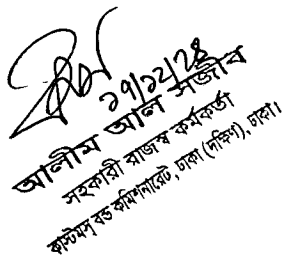 ১৭/১২/২৪
আলীম আল সজীব
সহকারী রাজস্ব কর্মকর্তা
কাস্টমস্ বন্ড কমিশনারেট, ঢাকা (দক্ষিণ), ঢাকা।